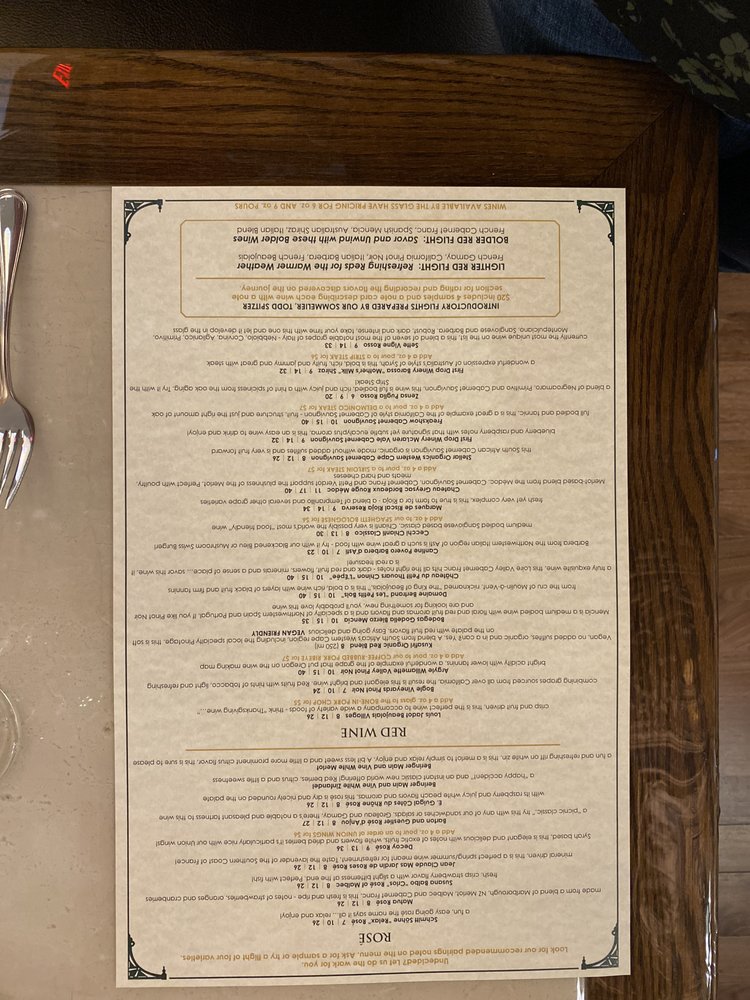 Undecided? Let us do the work for you.
Look for our recommended pairings noted on the menu. Ask for a sample or try a flight of four varieties.
ROSÉ
Schmitt Söhne "Relax" Rosé 7 | 10 | 24
a fun, easy going rosé the name says it all... relax and enjoy!
Matua Rosé 8 | 12 | 26
made from a blend of Marlborough, NZ Merlot, Malbec and Cabernet Franc, this is fresh and ripe - notes of strawberries, oranges and cranberries
Susana Balbo "Crios" Rosé of Malbec 8 | 12 | 26
fresh, crisp strawberry flavor with a slight bitterness at the end. Perfect with fish!
Jean Claude Mas Jardin de Roses Rosé 8 | 12 | 26
mineral driven, this is a perfect spring/summer wine meant for refreshment. Taste the lavender of the Southern Coast of France!
Decoy Rosé 9 | 13 | 36
Syrah based, this is elegant and delicious with notes of exotic fruits, white flowers and dried berries! It's particularly nice with our Union wings!
Add a 4 oz. pour to an order of UNION WINGS for $6
Barton and Guestier Rosé d'Anjou 8 | 12 | 27
a "picnic classic," try this with any of our sandwiches or salads. Groleau and Gamay, there's a notable and pleasant tartness to this wine
E. Guigal Côtes du Rhône Rosé 8 | 12 | 26
with its raspberry and juicy white peach flavors and aromas, this rosé is dry and nicely rounded on the palate
Beringer Main and Vine White Zinfandel
a "happy accident!" and an instant classic new world offering Red berries, citrus and a little sweetness
Beringer Main and Vine White Merlot
a fun and refreshing riff on white zin, this is a merlot to simply relax and enjoy. A bit less sweet and a little more prominent citrus flavor, this is sure to please
RED WINE
Louis Jadot Beaujolais Villages 8 | 12 | 26
crisp and fruit driven, this is the perfect wine to accompany a wide variety of foods - think "Thanksgiving wine..."
Add a 4 oz. glass to the BONE-IN PORK CHOP for $5
Bogle Vineyards Pinot Noir 7 | 10 | 24
combining grapes sourced from all over California, the result is this elegant and bright wine. Red fruits with hints of tobacco, light and refreshing
Argyle Willamette Valley Pinot Noir 10 | 15 | 40
bright acidity with lower tannins, a wonderful example of the grape that put Oregon on the wine making map
Add a 4 oz. pour to our COFFEE-RUBBED PORK RIBEYE for $7
Kusafiri Organic Red Blend 8 (250 ml)
Vegan, no added sulfites, organic and in a can? Yes. A blend from South Africa's Western Cape region, including the local specialty Pinotage, this is soft
on the palate with red fruit flavors. Easy going and delicious VEGAN FRIENDLY
Bodegas Godelia Bierzo Mencía 10 | 15 | 33
Mencia is a medium bodied wine with floral and red fruit aromas and flavors and is a specialty of Northwestern Spain and Portugal. If you like Pinot Noir
and are looking for something new, you'll probably love this wine
Domaine Bertrand "Les Petits Bois" 10 | 15 | 40
from the cru of Moulin-à-Vent, nicknamed "The King of Beaujolais," this is a bold, rich wine with layers of black fruit and firm tannins
Château du Petit Thouars Chinon "L'Épée" 10 | 15 | 40
a truly exquisite wine, this Loire Valley Cabernet Franc hits all the right notes - dark and red fruit, flowers, minerals and a sense of place.... savor this wine, it
is a real treasure!
Cantine Povero Barbera d'Asti 7 | 10 | 23
Barbera from the Northwestern Italian region of Asti is such a great wine with food - try it with our Blackened Bleu or Mushroom Swiss Burger!
Cecchi Chianti Classico 8 | 13 | 30
medium bodied Sangiovese based classic, Chianti is very possibly the world's most "food friendly" wine
Add 4 oz. to our SPAGHETTI BOLOGNESE for $4
Marques de Riscal Rioja Reserva 9 | 14 | 34
fresh yet very complex, this is true to form for a Rioja - a blend of tempranillo and several other grape varieties
Chateau Greysac Bordeaux Rouge Medoc 11 | 17 | 40
Merlot-based blend from the Medoc. Cabernet Sauvignon, Cabernet Franc and Petit Verdot support the plushness of the Merlot, Perfect with poultry,
meats and hard cheeses
Add a 4 oz. pour to a SIRLOIN STEAK for $7
Stellar Organics Western Cape Cabernet Sauvignon 8 | 12 | 26
this South African Cabernet Sauvignon is organic, made without added sulfites and is very fruit forward
First Drop Winery McLaren Vale Cabernet Sauvignon 9 | 14 | 32
blueberry and raspberry notes with that signature yet subtle eucalyptus aroma, this is an easy wine to drink and enjoy!
Freakshow Cabernet Sauvignon 10 | 15 | 40
full bodied and tannic, this is a great example of the California style of Cabernet Sauvignon - fruit, structure and just the right amount of oak
Add a 4 oz. pour to a DELMONICO STEAK for $7
Zensa Puglia Rosso 6 | 9 | 20
a blend of Negroamaro, Primitivo and Cabernet Sauvignon, this wine is full bodied, rich and juicy with a hint of spiciness from the oak aging. Try it with the
Strip Steak!
First Drop Winery Barossa "Mother's Milk" Shiraz 9 | 14 | 32
a wonderful expression of Australia's style of Syrah, this is bold, rich, fruity and jammy and great with steak
Add a 4 oz. pour to a STRIP STEAK for $6
Sette Vigne Rosso 9 | 14 | 33
currently the most unique wine on the list, this is a blend of seven of the most notable grapes of Italy - Nebbiolo, Corvina, Aglianico, Primitivo,
Montepulciano, Sangiovese and Barbera. Robust, dark and intense, take your time with this one and let it develop in the glass
INTRODUCTORY FLIGHTS PREPARED BY OUR SOMMELIER, TODD SPITZER
$20 includes 4 samples and a note card describing each wine with a note
section for rating and recording the flavors discovered on the journey.
LIGHTER RED FLIGHT: Refreshing Reds for the Warmer Weather
French Gamay, California Pinot Noir, Italian Barbera, French Beaujolais
BOLDER RED FLIGHT: Savor and Unwind with these Bolder Wines
French Cabernet Franc, Spanish Mencia, Australian Shiraz, Italian Blend
WINES AVAILABLE BY THE GLASS HAVE PRICING FOR 6 oz. AND 9 oz. POURS